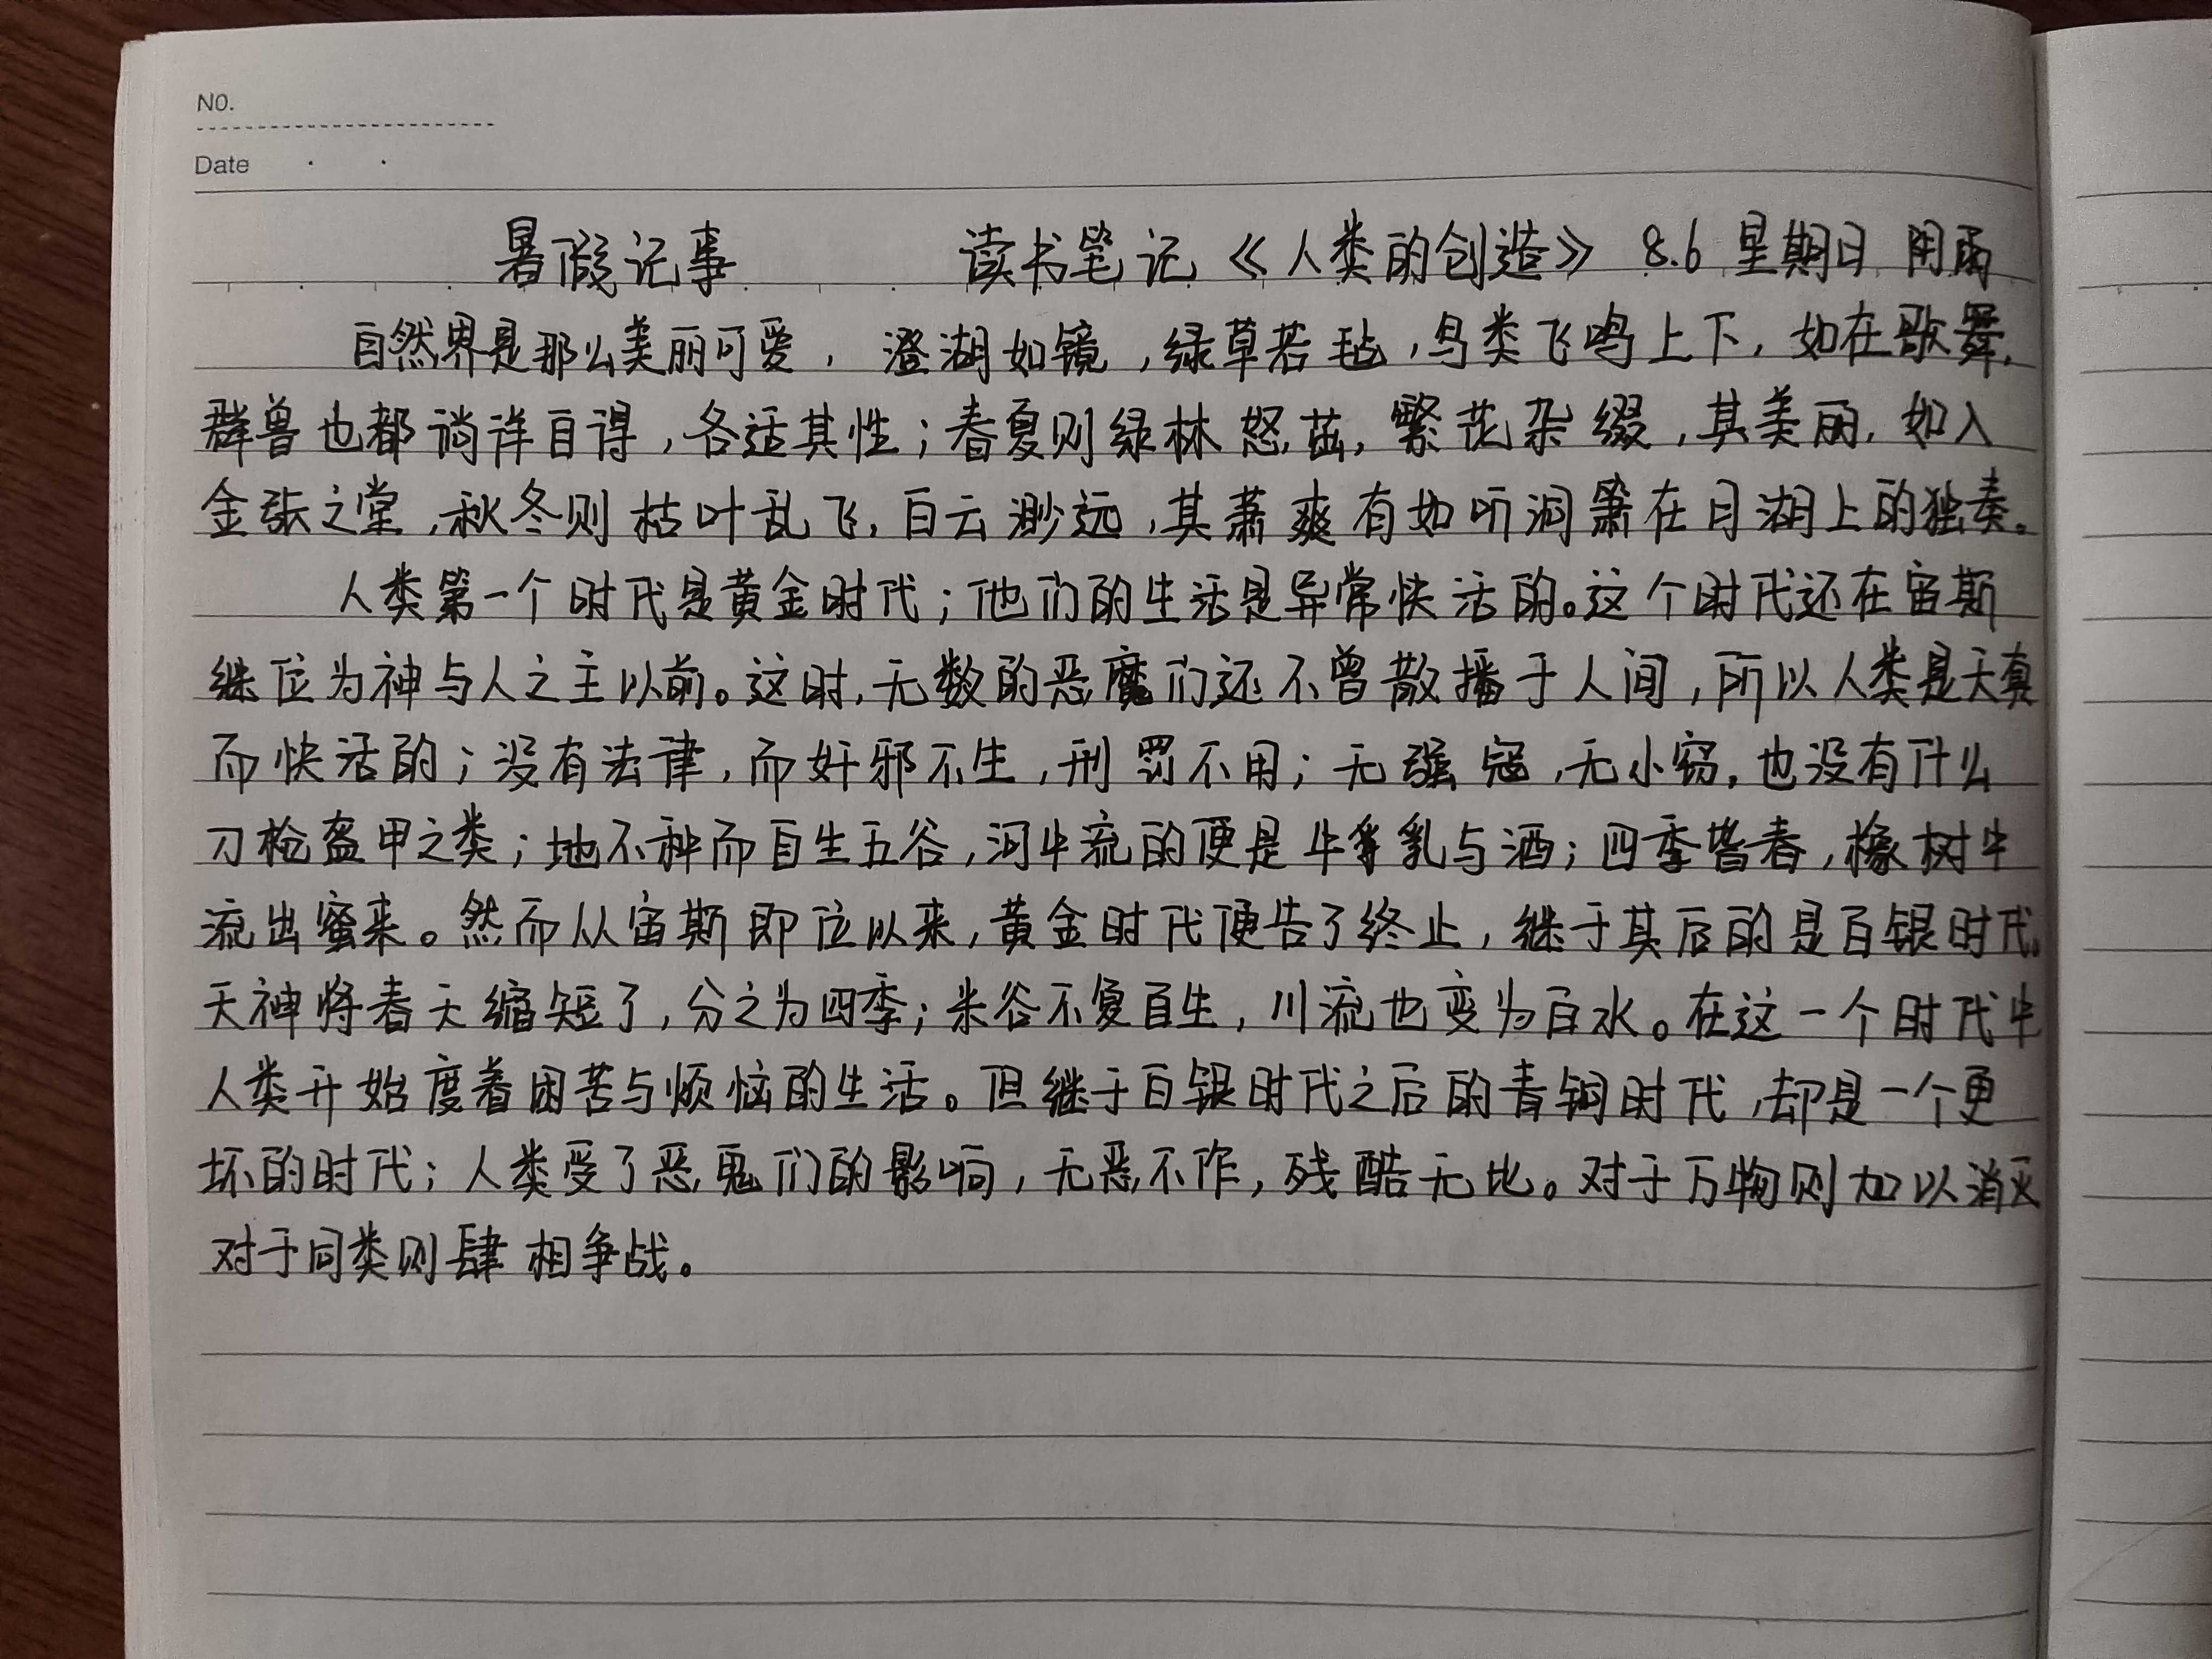 NO.
Date
暑假记事 读书笔记《人类的创造》 8.6 星期日 阴雨
自然界是那么美丽可爱，澄湖如镜，绿草若毡，鸟类飞鸣上下，如在歌舞，
群兽也都徜徉自得，各适其性；春夏则绿林怒茁，繁花杂缀，其美丽，如入
金张之堂，秋冬则枯叶乱飞，白云渺远，其萧爽有如听洞箫在月湖上的独奏。
人类第一个时代是黄金时代；他们的生活是异常快活的。这个时代还在宙斯
继位为神与人之主以前。这时，无数的恶魔们还不曾散播于人间，所以人类是天真
而快活的；没有法律，而奸邪不生，刑罚不用；无强寇，无小窃，也没有什么
刀枪盔甲之类；地不种而自生五谷，河中流的便是牛乳与酒；四季皆春，橡树中
流出蜜来。然而从宙斯即位以来，黄金时代便告了终止，继于其后的是白银时代。
天神将春天缩短了，分之为四季；米谷不复自生，川流也变为白水。在这一个时代中
人类开始度着困苦与烦恼的生活。但继于白银时代之后的青铜时代，却是一个更
坏的时代；人类受了恶鬼们的影响，无恶不作，残酷无比。对于万物则加以消灭
对于同类则肆相争战。